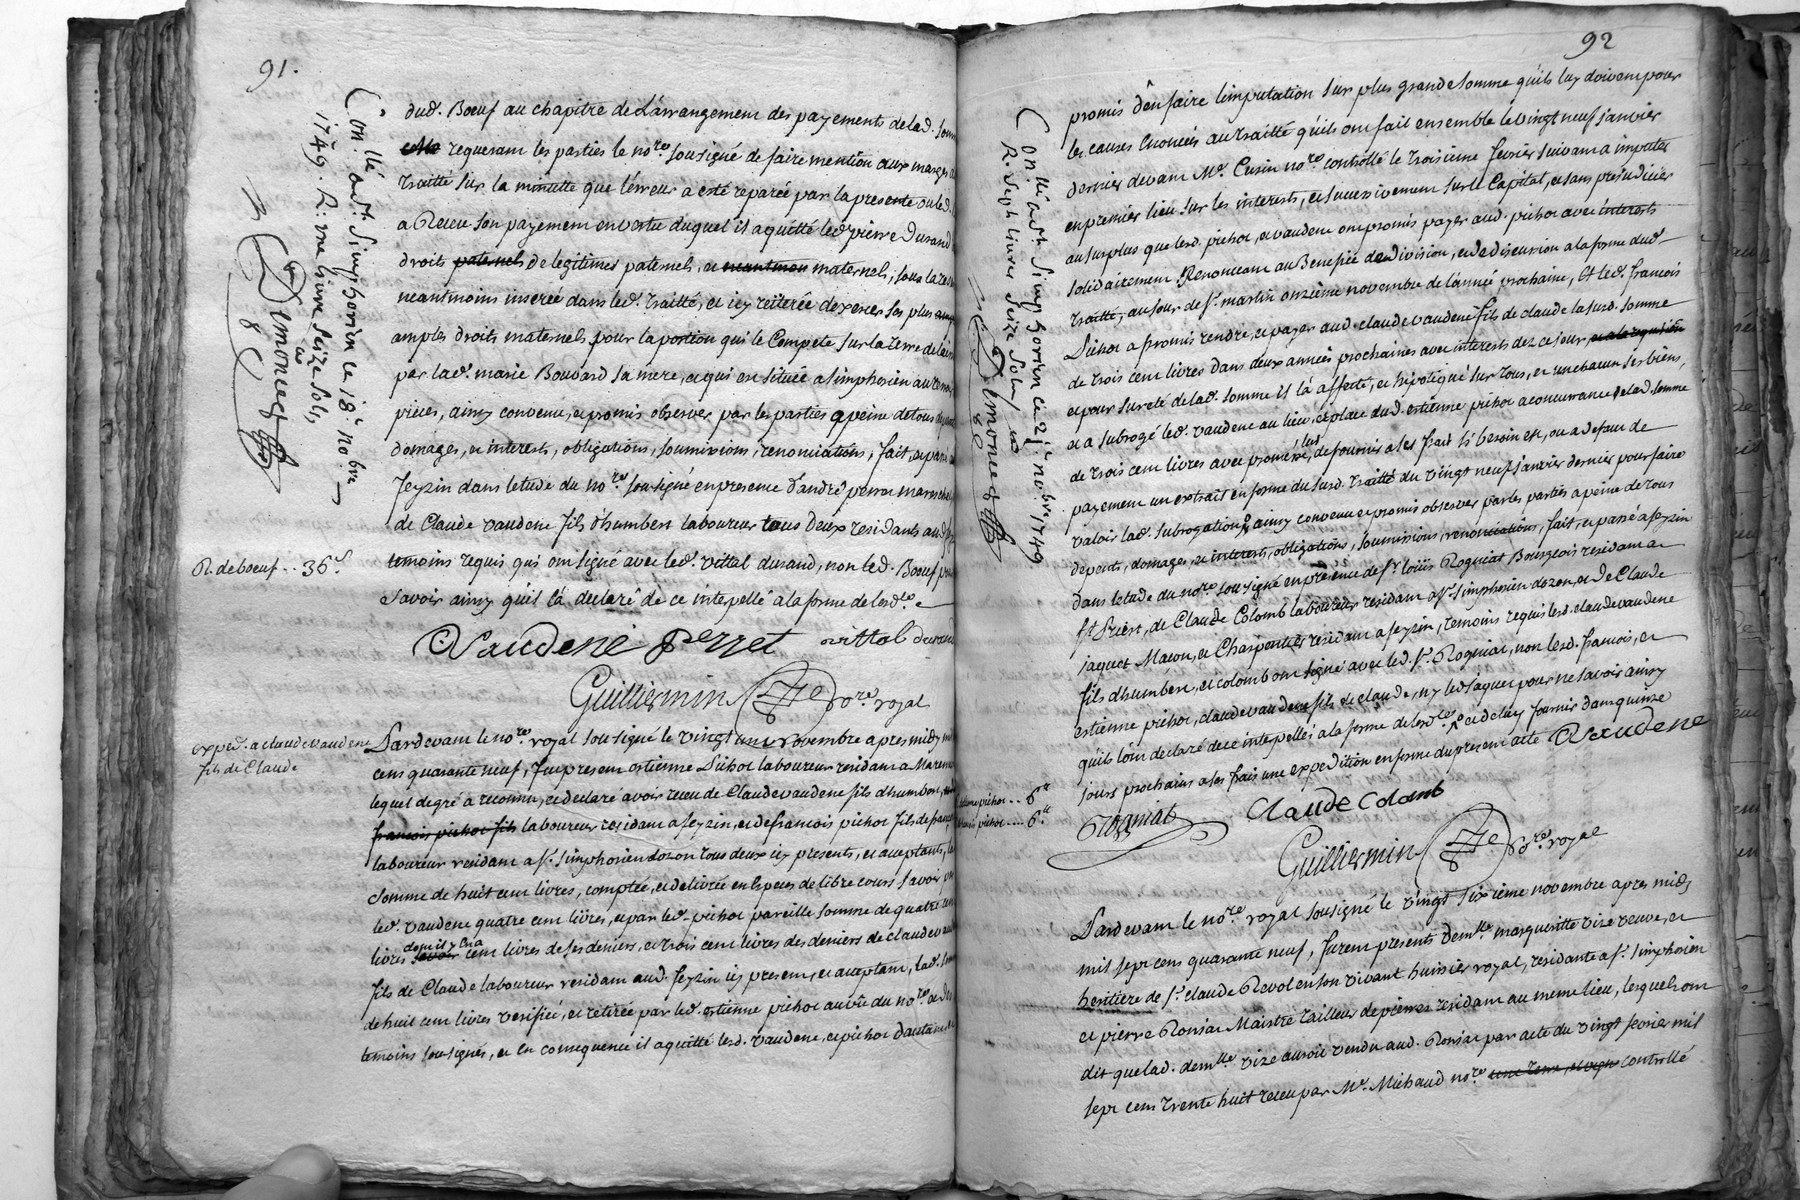 91.
Con.llé a St. Simphorien ce 18e nobre
1749. R: une livre seize sols,
Demonceg
dud. Boeuf au chapitre de L'arrangement des payements de lad.
requerant les parties le nore. sousigné de faire mention aux marges
traitté sur la minutte que l'erreur a esté reparée par la presente ou led.
a Receu son payement en vertu duquel il a quitté led. pierre Durand
droits paternels de legitimes paternel, et neantmoins maternel, sous la
neantmoins inserée dans led. traitté, et icy reiterée dexercer ses plus
amples droits maternels pour la portion qui le Compete sur la terre
par lad. marie Bouvard sa mere, et qui en située a simphorien au
pieces, ainsy convenu, et promis observer par les parties a peine de tous
domages, et interests, obligations, soumissions, renonciations, fait, et passé a
feyzin dans letude du nore. sousigné en presence d'andré perret
de Claude vaudene fils d'humbert laboureur tous deux residants aud.
R. de boeuf .. 36s.
temoins requis qui ont signé avec led. vittal durand, non led. Boeuf pour
savoir ainsy quil l'a declaré de ce interpellé a la forme de lordce.
Vaudene Perret vittal durand
Guilliermin nore. royal
exped. a claude vaudene
fils de Claude
Pardevant le nore. royal sousigné le vingt un novembre apres midy mil
cens quarante neuf, fut present estienne Pichot laboureur residant a Marenne
lequel de gré a reconnu, et declaré avoir receu de Claude vaudene fils dhumbert,
francois pichot fils laboureur residant a feyzin, et de francois pichot fils de
laboureur residant a St. simphorien dozon tous deux icy presents, et acceptants, la
somme de huit cent livres, comptée, et delivrée en Especes de libre cours savoir par
led. vaudene quatre cent livres, et par led. pichot pareille somme de quatre cent
livres savoir dont il y en a cent livres de ses deniers, et trois cent livres des deniers de claude
fils de Claude laboureur residant aud. feyzin icy present, et acceptant, lad. somme
de huit cent livres verifiée, et retirée par led. estienne pichot au vû du nore. et des
temoins sousignés, et en consequence il a quitté lesd. vaudene, et pichot
92
Con.llé a St. Simphorien ce 21e nobre 1749
R. sept livres seize sols,
Demonceg
promis d'en faire l'imputation sur plus grande somme qu'ils luy doivent pour
les causes enoncées au traitté qu'ils ont fait ensemble le vingt neuf janvier
dernier devant Me. Cusin nore. controllé le troisieme fevrier suivant a imputer
en premier lieu sur les interests, et successivement sur le Capital, et sans prejudicier
au surplus que lesd. pichot, et vaudene ont promis payer aud. pichot avec interests
solidairement Renonceant au Benefice de division, et de discussion a la forme dud.
traitté, au jour de St. martin onzieme novembre de l'année prochaine, Et led. francois
Pichot a promis rendre, et payer aud. claude vaudene fils de claude la susd. somme
de trois cent livres dans deux années prochaines avec interests dez ce jour
et pour sureté de lad. somme il l'a affecté, et hipotequé sur tous, et un chacun ses biens,
et a subrogé led. vaudene au lieu, et place dud. estienne pichot a concurrance de lad. somme
de trois cent livres avec promesse de fournir a ses frais s'il besoin est, ou a defaut de
payement un extrait en forme du susd. traitté du vingt neuf janvier dernier pour faire
valoir lad. subrogation, ainsy convenu et promis observer par les parties a peine de tous
depents, domages, et interests, obligations, soumissions, renonciations, fait, et passé a feyzin
dans letude du nore. sousigné en presence de Sr. loüis Rogniat Bourgeois residant a
St Priest, de Claude Colomb laboureur residant a St. simphorien dozon, et de Claude
jaquet Macon, et Charpentier residant a feyzin, temoins requis lesd. claude vaudene
fils dhumbert, et colomb ont signé avec led. Sr. Rogniat, non lesd. francois, et
estienne pichot, claude vaudene fils de claude, ny led. jaquet pour ne savoir ainsy
qu'ils l'ont declaré de ce interpellés a la forme de lordce. et de luy fournir dans quinze
jours prochains a ses frais une expedition en forme du present acte Vaudene
estienne pichot ... 6tt
francois pichot .... 6tt
Rogniat Claude Colomb
Guilliermin nore. royal
Pardevant le nore. royal sousigné le vingt sixieme novembre apres midy
mil sept cens quarante neuf, furent presents demlle. margueritte vize veuve, et
heritiere de Sr. claude Revol en son vivant huissier royal, residante a St. simphorien
et pierre Ronjat Maistre tailleur de pierres residant au meme lieu, lesquels ont
dit que lad. demlle vize auroit vendu aud. Ronjat par acte du vingt fevrier mil
sept cens trente huit receu par Me. Michaud nore. controllé